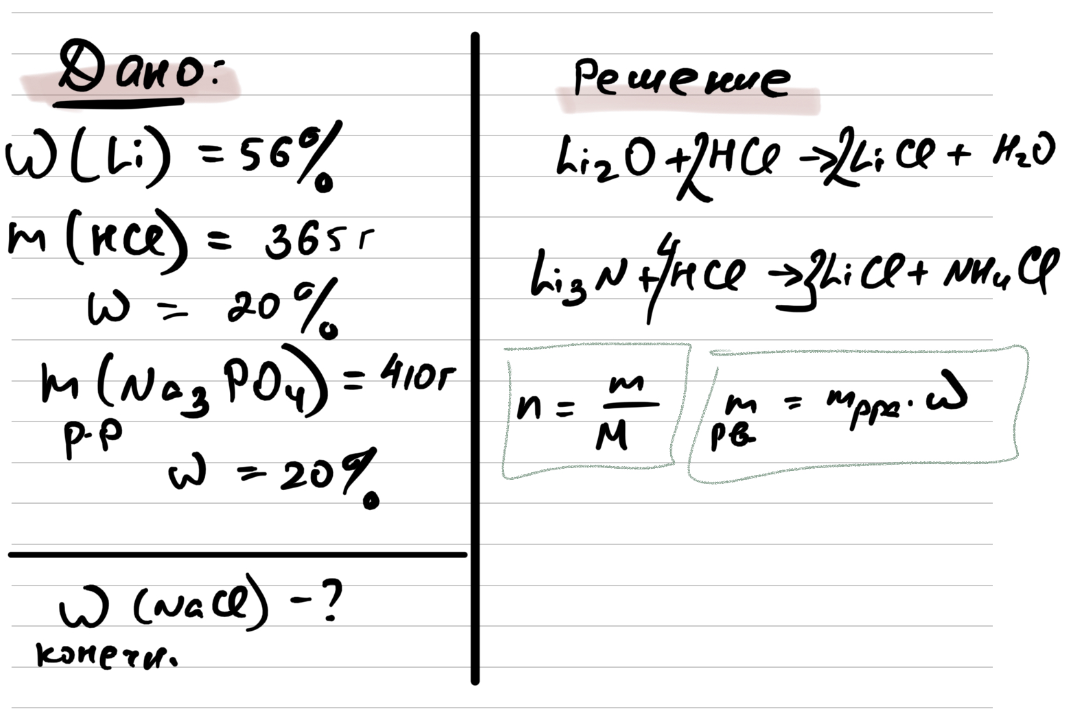 Дано:
W(Li) = 56%
m(HCl) = 365г
W = 20%
m(Na₃PO₄) = 410г
р-р
W = 20%
W (NaCl) - ?
конечн.
Решение
Li₂O + 2HCl → 2LiCl + H₂O
Li₃N + 4HCl → 3LiCl + NH₄Cl
n = m/M
m = mрра · W
рв